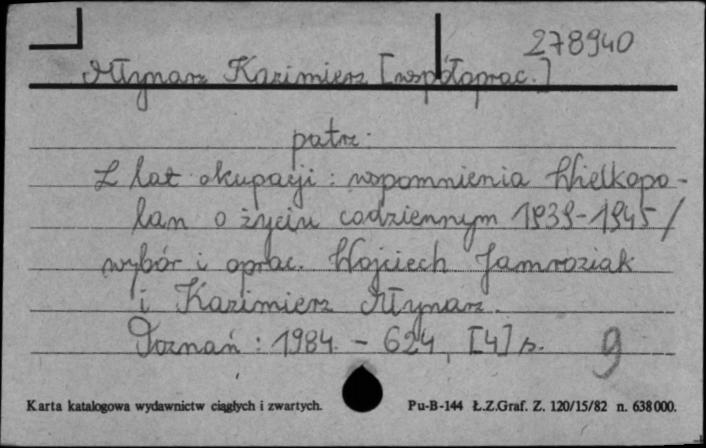 278940
Młynarz Kazimierz [współoprac.]
patrz:
Z lat okupacji : wspomnienia Wielkopo-
lan o życiu codziennym 1939-1945 /
wybór i oprac. Wojciech Jamroziak
i Kazimierz Młynarz.
Poznań : 1984. - 624, [4] s. 9
Karta katalogowa wydawnictw ciągłych i zwartych. Pu-B-144 Ł.Z.Graf. Z. 120/15/82 n. 638000.